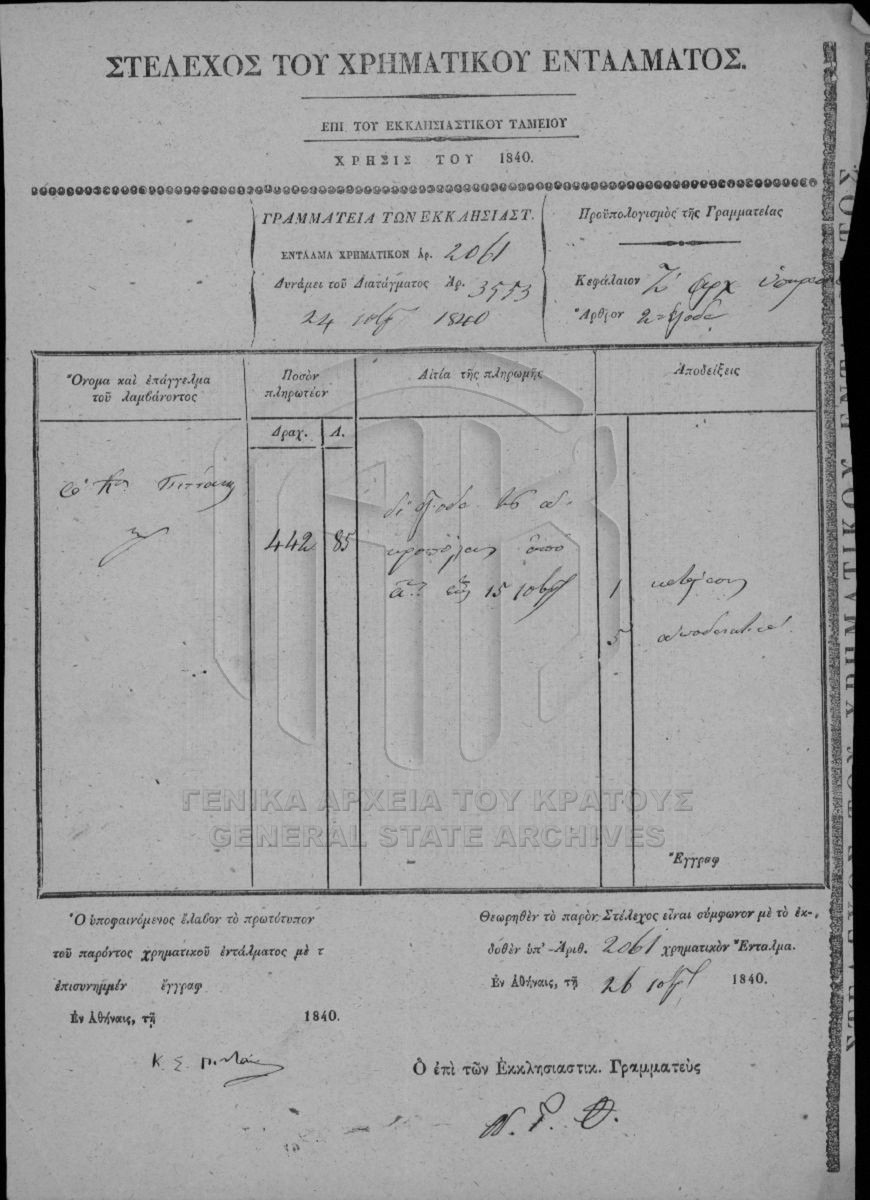 ΣΤΕΛΕΧΟΣ ΤΟΥ ΧΡΗΜΑΤΙΚΟΥ ΕΝΤΑΛΜΑΤΟΣ.
ΕΠΙ ΤΟΥ ΕΚΚΛΗΣΙΑΣΤΙΚΟΥ ΤΑΜΕΙΟΥ
ΧΡΗΣΙΣ ΤΟΥ 1840.
ΓΡΑΜΜΑΤΕΙΑ ΤΩΝ ΕΚΚΛΗΣΙΑΣΤ.
ΕΝΤΑΛΜΑ ΧΡΗΜΑΤΙΚΟΝ Ἀρ. 2061
Δυνάμει τοῦ Διατάγματος Ἀρ. 3553
24 10βρ 1840
Προϋπολογισμὸς τῆς Γραμματείας
Κεφάλαιον Ζ' ἀρχ
Ἄρθρον 2 ἔξοδα
Ὄνομα καὶ ἐπάγγελμα
τοῦ λαμβάνοντος
Ποσὸν
πληρωτέον
Αἰτία τῆς πληρωμῆς
Ἀποδείξεις
Δραχ. Λ.
Πιττάκη
442 85
δι' ἔξοδα τῆς ἀ-
κροπόλεως ἀπὸ
ἕως 15 10βρ
1
5 ἀποδεικτικά
Ἔγγραφ
ΓΕΝΙΚΑ ΑΡΧΕΙΑ ΤΟΥ ΚΡΑΤΟΥΣ
GENERAL STATE ARCHIVES
Ὁ ὑποφαινόμενος ἔλαβον τὸ πρωτότυπον
τοῦ παρόντος χρηματικοῦ ἐντάλματος μὲ τ
ἐπισυνημμέν ἔγγραφ
Ἐν Ἀθήναις, τῇ 1840.
Κ Σ Πιττάκης
Θεωρηθὲν τὸ παρὸν Στέλεχος εἶναι σύμφωνον μὲ τὸ ἐκ-
δυθὲν ὑπ' Ἀριθ. 2061 χρηματικὸν Ἔνταλμα.
Ἐν Ἀθήναις, τῇ 26 10βρ 1840.
Ὁ ἐπὶ τῶν Ἐκκλησιαστικ. Γραμματεὺς
ΣΤΕΛΕΧΟΣ ΤΟΥ ΧΡΗΜΑΤΙΚΟΥ ΕΝΤΑΛΜΑΤΟΣ